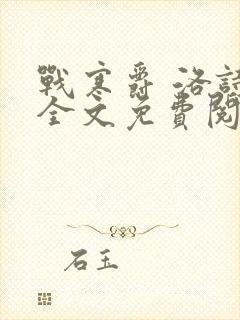 戰寒爵 洛詩
全文免費閱
石玉